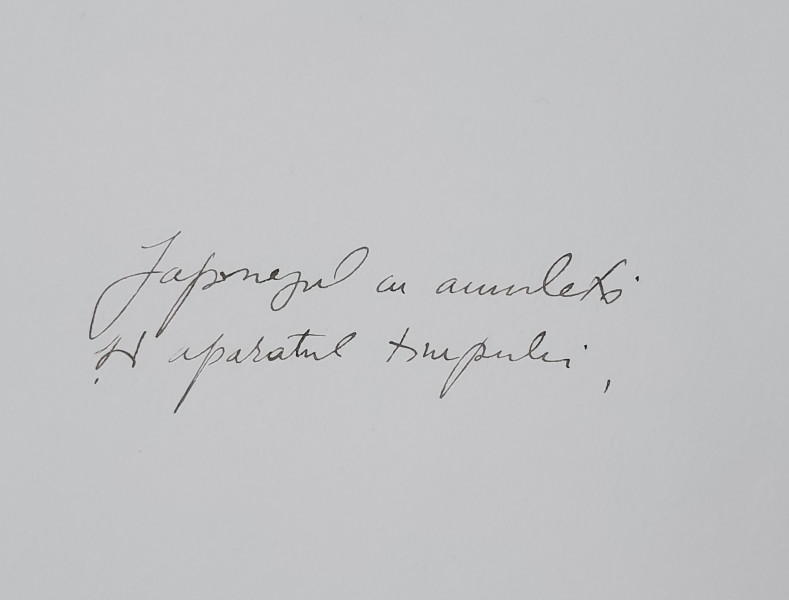 Japonezul cu amuleta
și aparatul timpului,